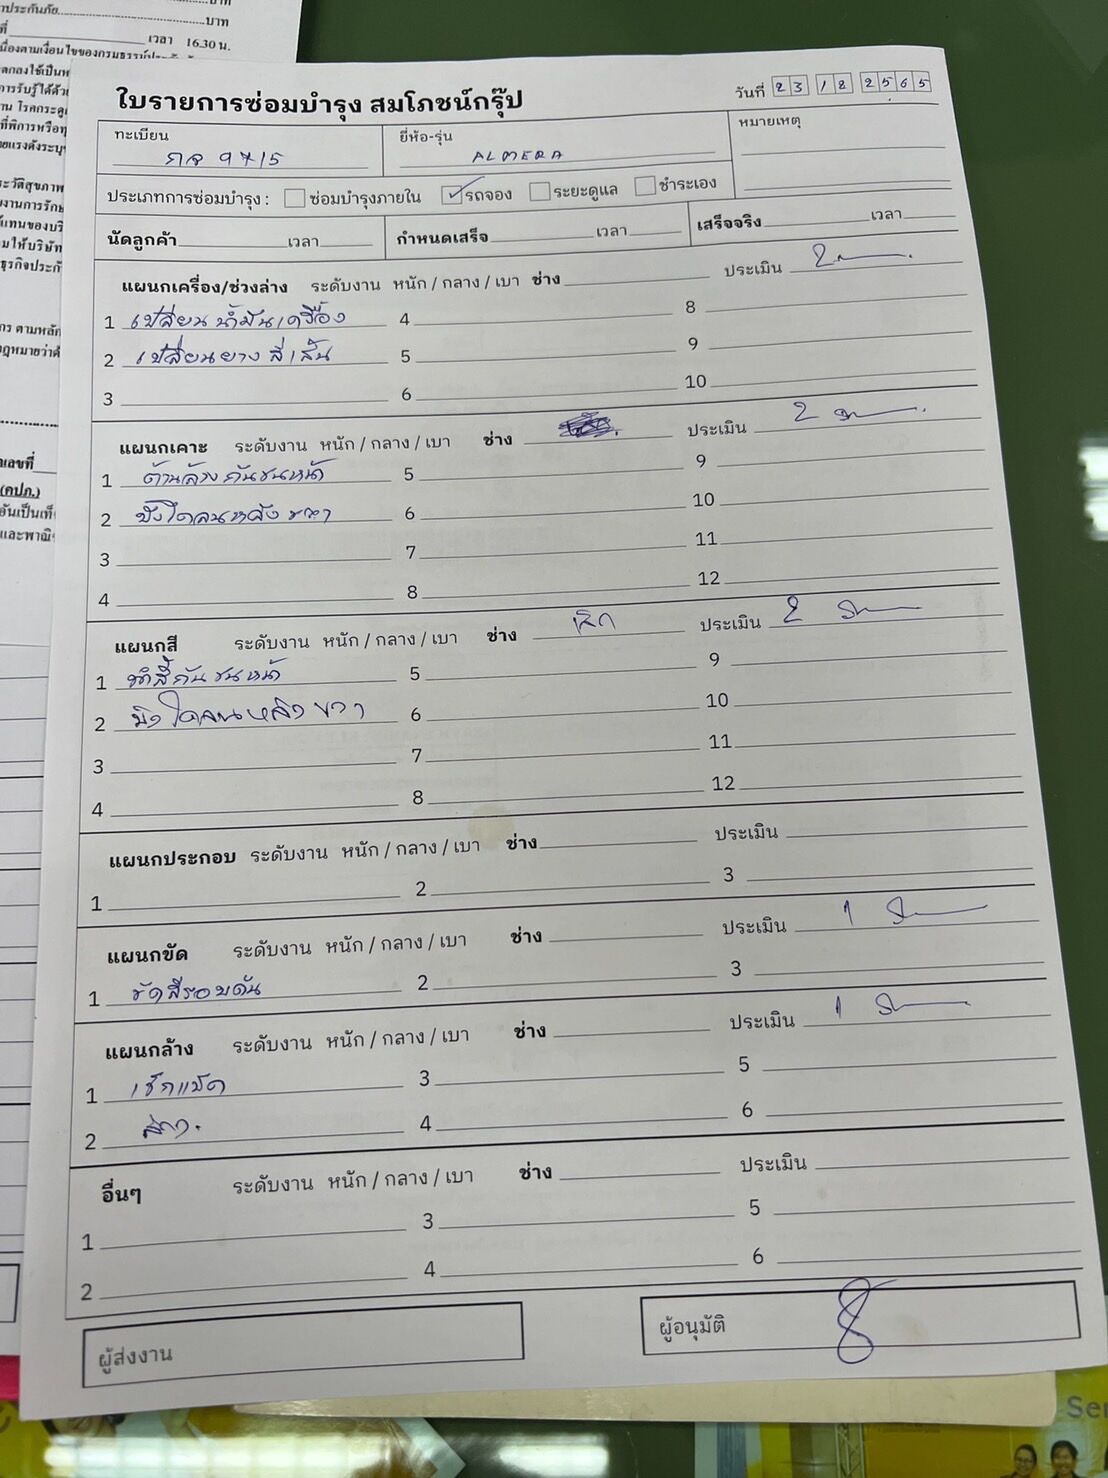 บาท
าประกันภัย
บาท
ที่ เวลา 16.30 น.
ใบรายการซ่อมบำรุง สมโภชน์กรุ๊ป
วันที่ 23 12 2565
ทะเบียน กจ 9715
ยี่ห้อ-รุ่น ALMERA
หมายเหตุ
ประเภทการซ่อมบำรุง : ซ่อมบำรุงภายใน ✓ รถจอง ระยะดูแล ชำระเอง
นัดลูกค้า เวลา กำหนดเสร็จ เวลา เสร็จจริง เวลา
แผนกเครื่อง/ช่วงล่าง ระดับงาน หนัก / กลาง / เบา ช่าง ประเมิน 2
1 เปลี่ยนน้ำมันเครื่อง 4 8
2 เปลี่ยนยางสี่เส้น 5 9
3 6 10
แผนกเคาะ ระดับงาน หนัก / กลาง / เบา ช่าง ประเมิน 2
1 ด้านล่างกันชนหน้า 5 9
2 บังโคลนหลังขวา 6 10
3 7 11
4 8 12
แผนกสี ระดับงาน หนัก / กลาง / เบา ช่าง ประเมิน 2
1 ทำสีกันชนหน้า 5 9
2 บังโคลนหลังขวา 6 10
3 7 11
4 8 12
แผนกประกอบ ระดับงาน หนัก / กลาง / เบา ช่าง ประเมิน
1 2 3
แผนกขัด ระดับงาน หนัก / กลาง / เบา ช่าง ประเมิน 1
1 ขัดสีรอบคัน 2 3
แผนกล้าง ระดับงาน หนัก / กลาง / เบา ช่าง ประเมิน 1
1 เช็กแบ็ต 3 5
2 ล้าง. 4 6
อื่นๆ ระดับงาน หนัก / กลาง / เบา ช่าง ประเมิน
1 3 5
2 4 6
ผู้ส่งงาน
ผู้อนุมัติ
Ser